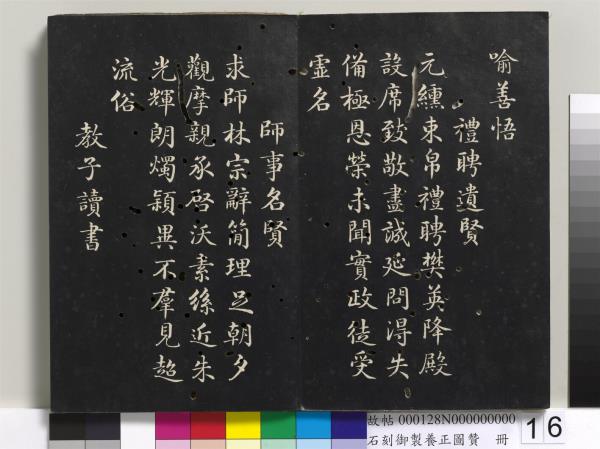 喻善悟
禮聘遺賢
元纁束帛禮聘樊英降殿
設席致敬盡誠延問得失
備極恩榮未聞實政徒受
虛名
師事名賢
求師林宗辭簡理足朝夕
觀摩親承啓沃素絲近朱
光輝朗燭穎異不羣見超
流俗
教子讀書
故帖 000128N000000000
石刻御製養正圖贊 冊
16